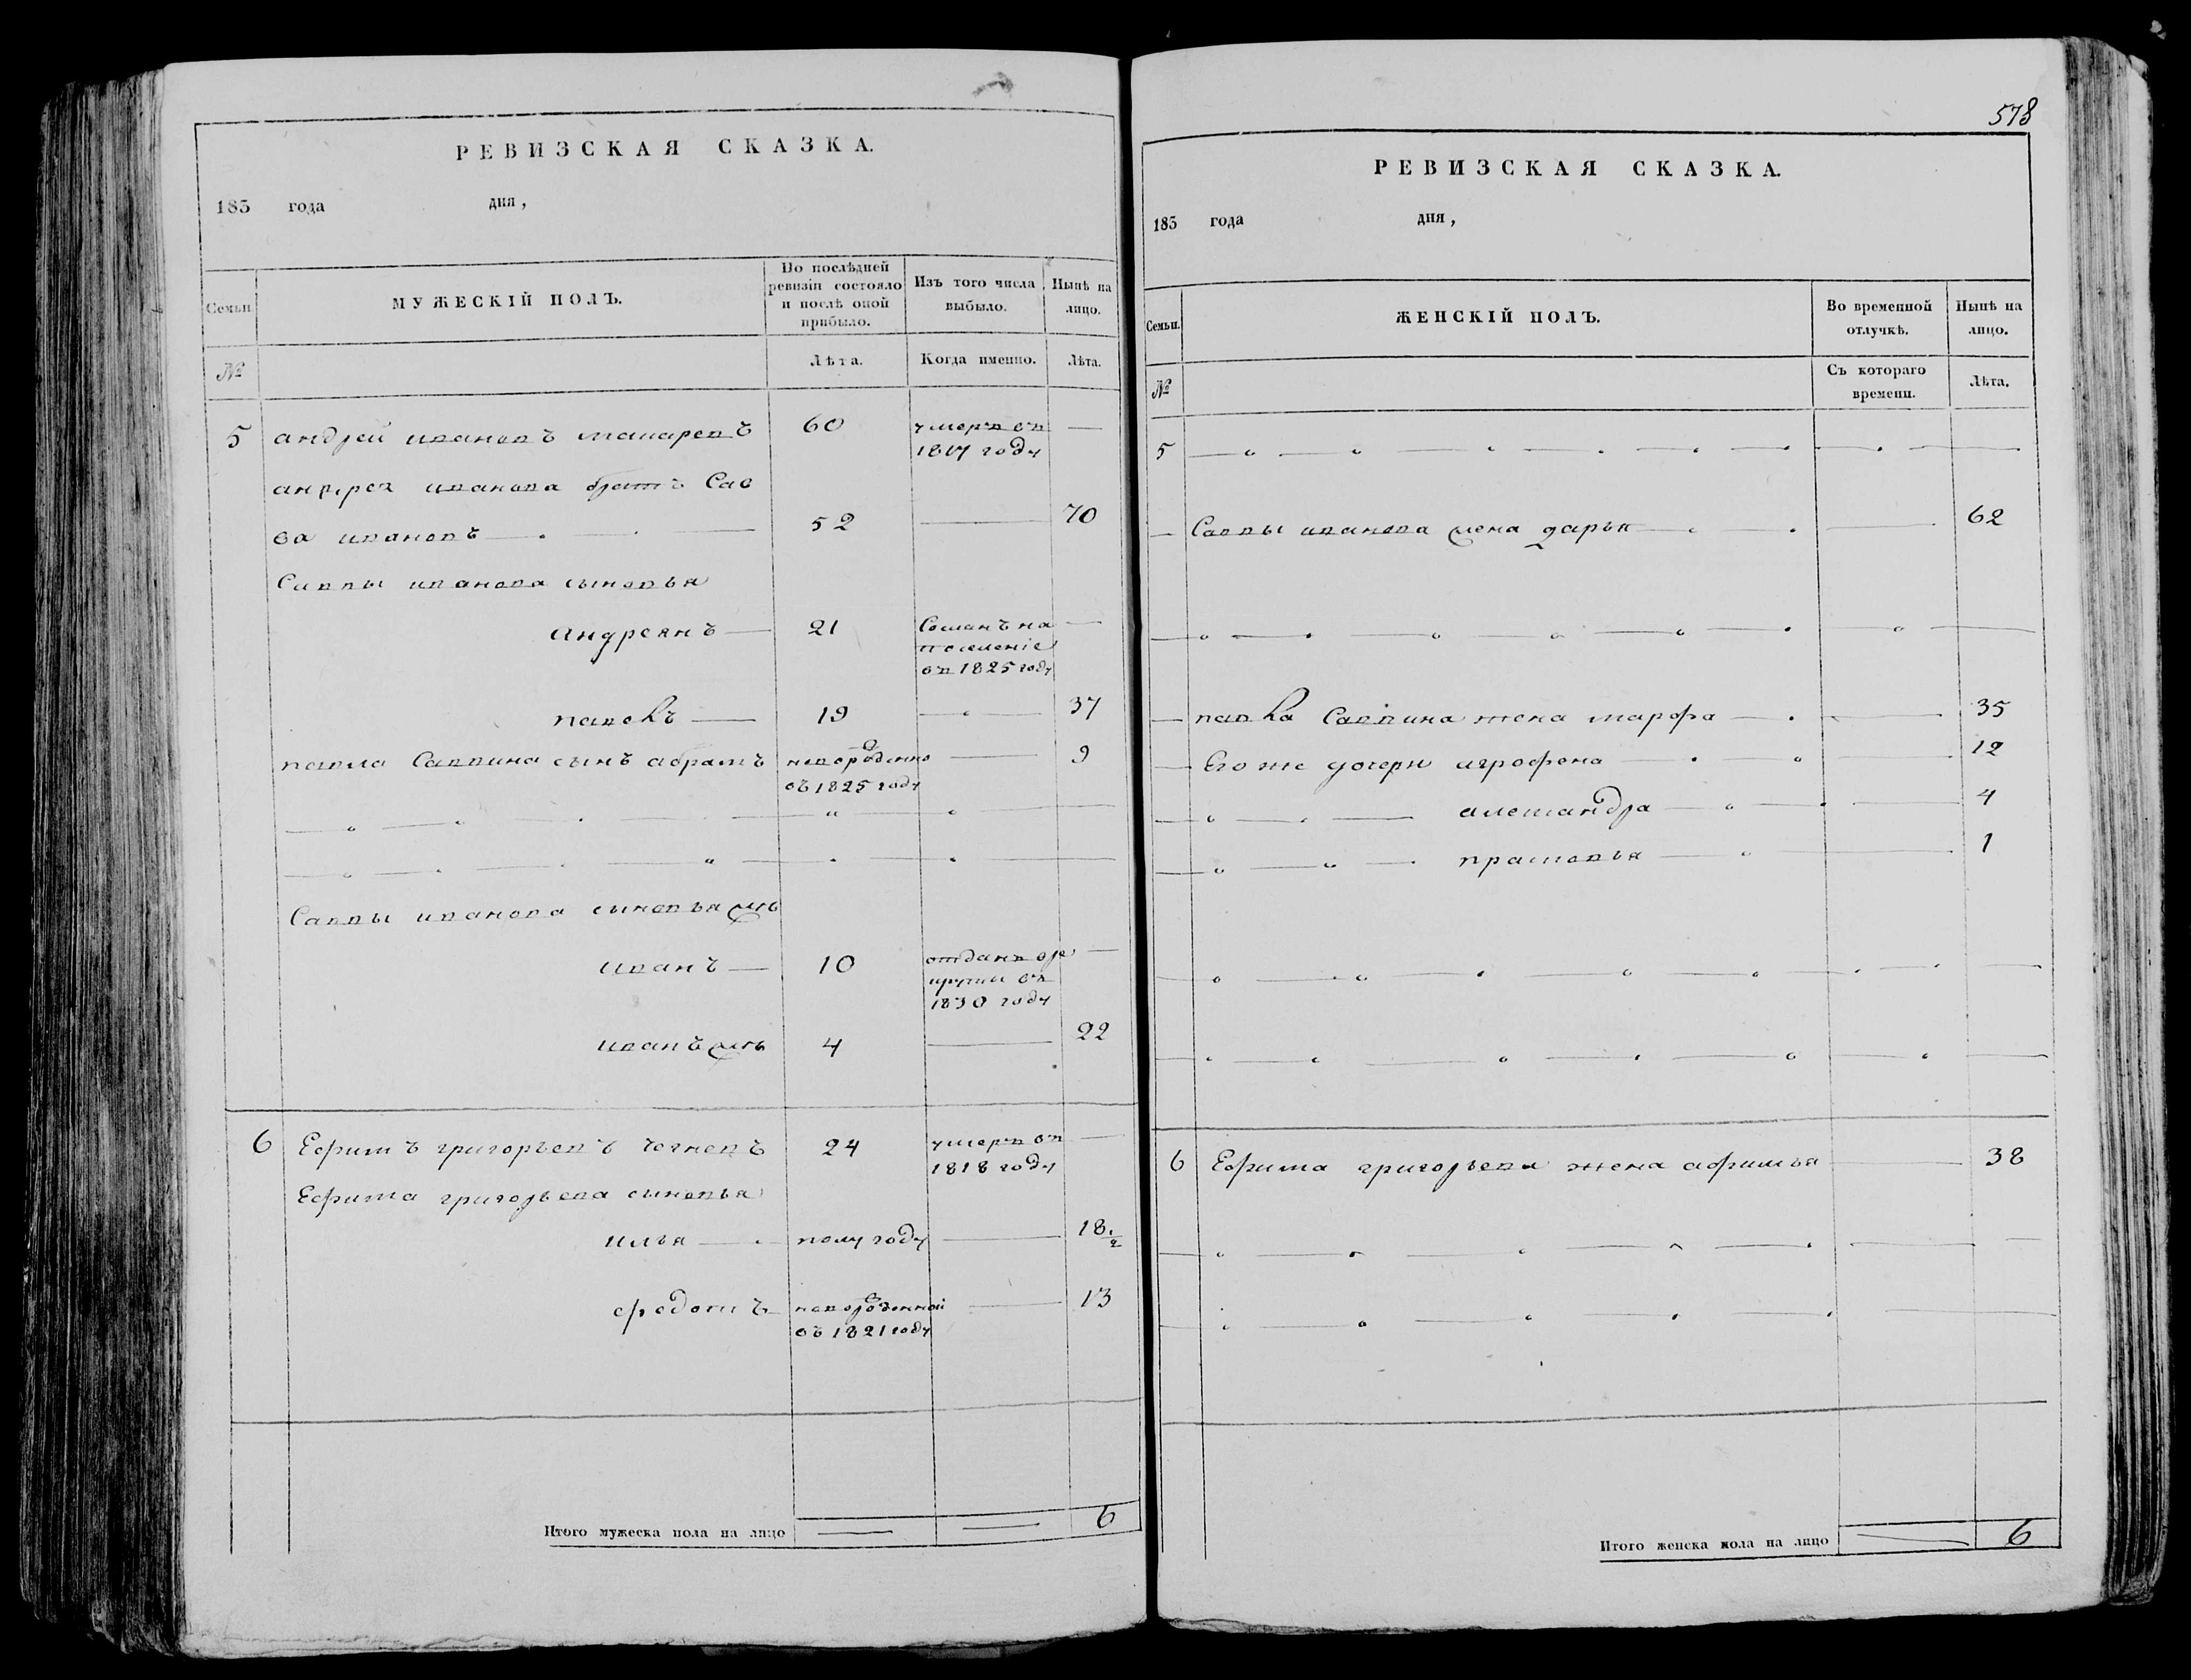 РЕВИЗСКАЯ СКАЗКА.
183 года дня,
Семьи
МУЖЕСКІЙ ПОЛЪ.
По послѣдней ревизіи состояло и послѣ оной прибыло.
Изъ того числа выбыло.
Нынѣ на лицо.
№
Лѣта.
Когда именно.
Лѣта.
5 андрей ивановъ макаревъ 60 умеръ въ —
1817 году
андрея иванова братъ Сав
ва ивановъ 52 — 70
Саввы иванова сыновья
андреянъ — 21 Сосланъ на —
поселеніе
въ 1825 году
павелъ — 19 — 37
павла Саввина сынъ абрамъ новорожденно — 9
въ 1825 году
Саввы иванова сыновья же
иванъ — 10 отданъ въ ре —
круты въ
1830 году
иванъ же 4 — 22
6 Ефимъ григорьевъ 24 умеръ въ —
1818 году
Ефима григорьева сыновья
илья — полугоду — 18 1/2
федотъ новорожденной — 13
въ 1821 году
Итого мужеска пола на лицо — — 6
578
РЕВИЗСКАЯ СКАЗКА.
183 года дня,
Семьи.
ЖЕНСКІЙ ПОЛЪ.
Во временной отлучкѣ.
Нынѣ на лицо.
№
Съ котораго времени.
Лѣта.
5
— Саввы иванова жена дарья — 62
— павла Саввина жена марфа — 35
— Его же дочери агрофена — 12
александра — 4
прасковья — 1
6 Ефима григорьева жена афимья — 38
Итого женска пола на лицо — 6